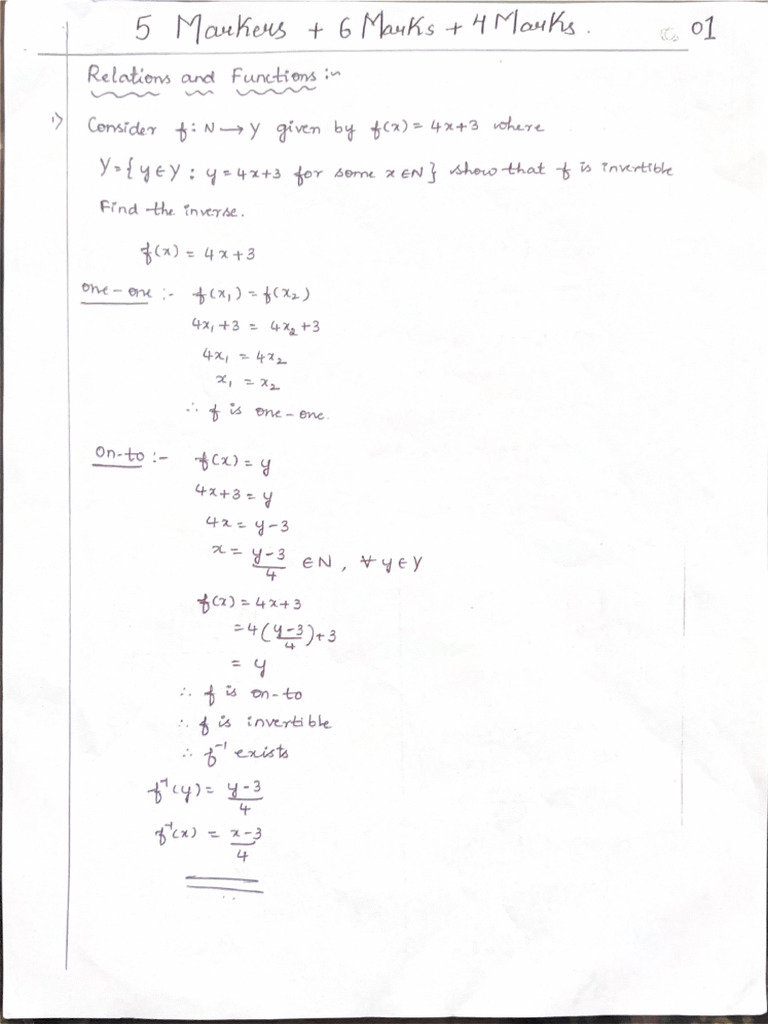 5 Markers + 6 Marks + 4 Marks. 01
Relations and Functions :~
1) Consider f : N → Y given by f(x) = 4x+3 where
Y = { y ∈ Y : y = 4x+3 for some x ∈ N } show that f is invertible
Find the inverse.
f(x) = 4x+3
one-one :- f(x₁) = f(x₂)
4x₁+3 = 4x₂+3
4x₁ = 4x₂
x₁ = x₂
∴ f is one-one.
On-to :- f(x) = y
4x+3 = y
4x = y-3
x = (y-3)/4 ∈ N, ∀ y ∈ Y
f(x) = 4x+3
= 4((y-3)/4)+3
= y
∴ f is on-to
∴ f is invertible
∴ f⁻¹ exists
f⁻¹(y) = (y-3)/4
f⁻¹(x) = (x-3)/4